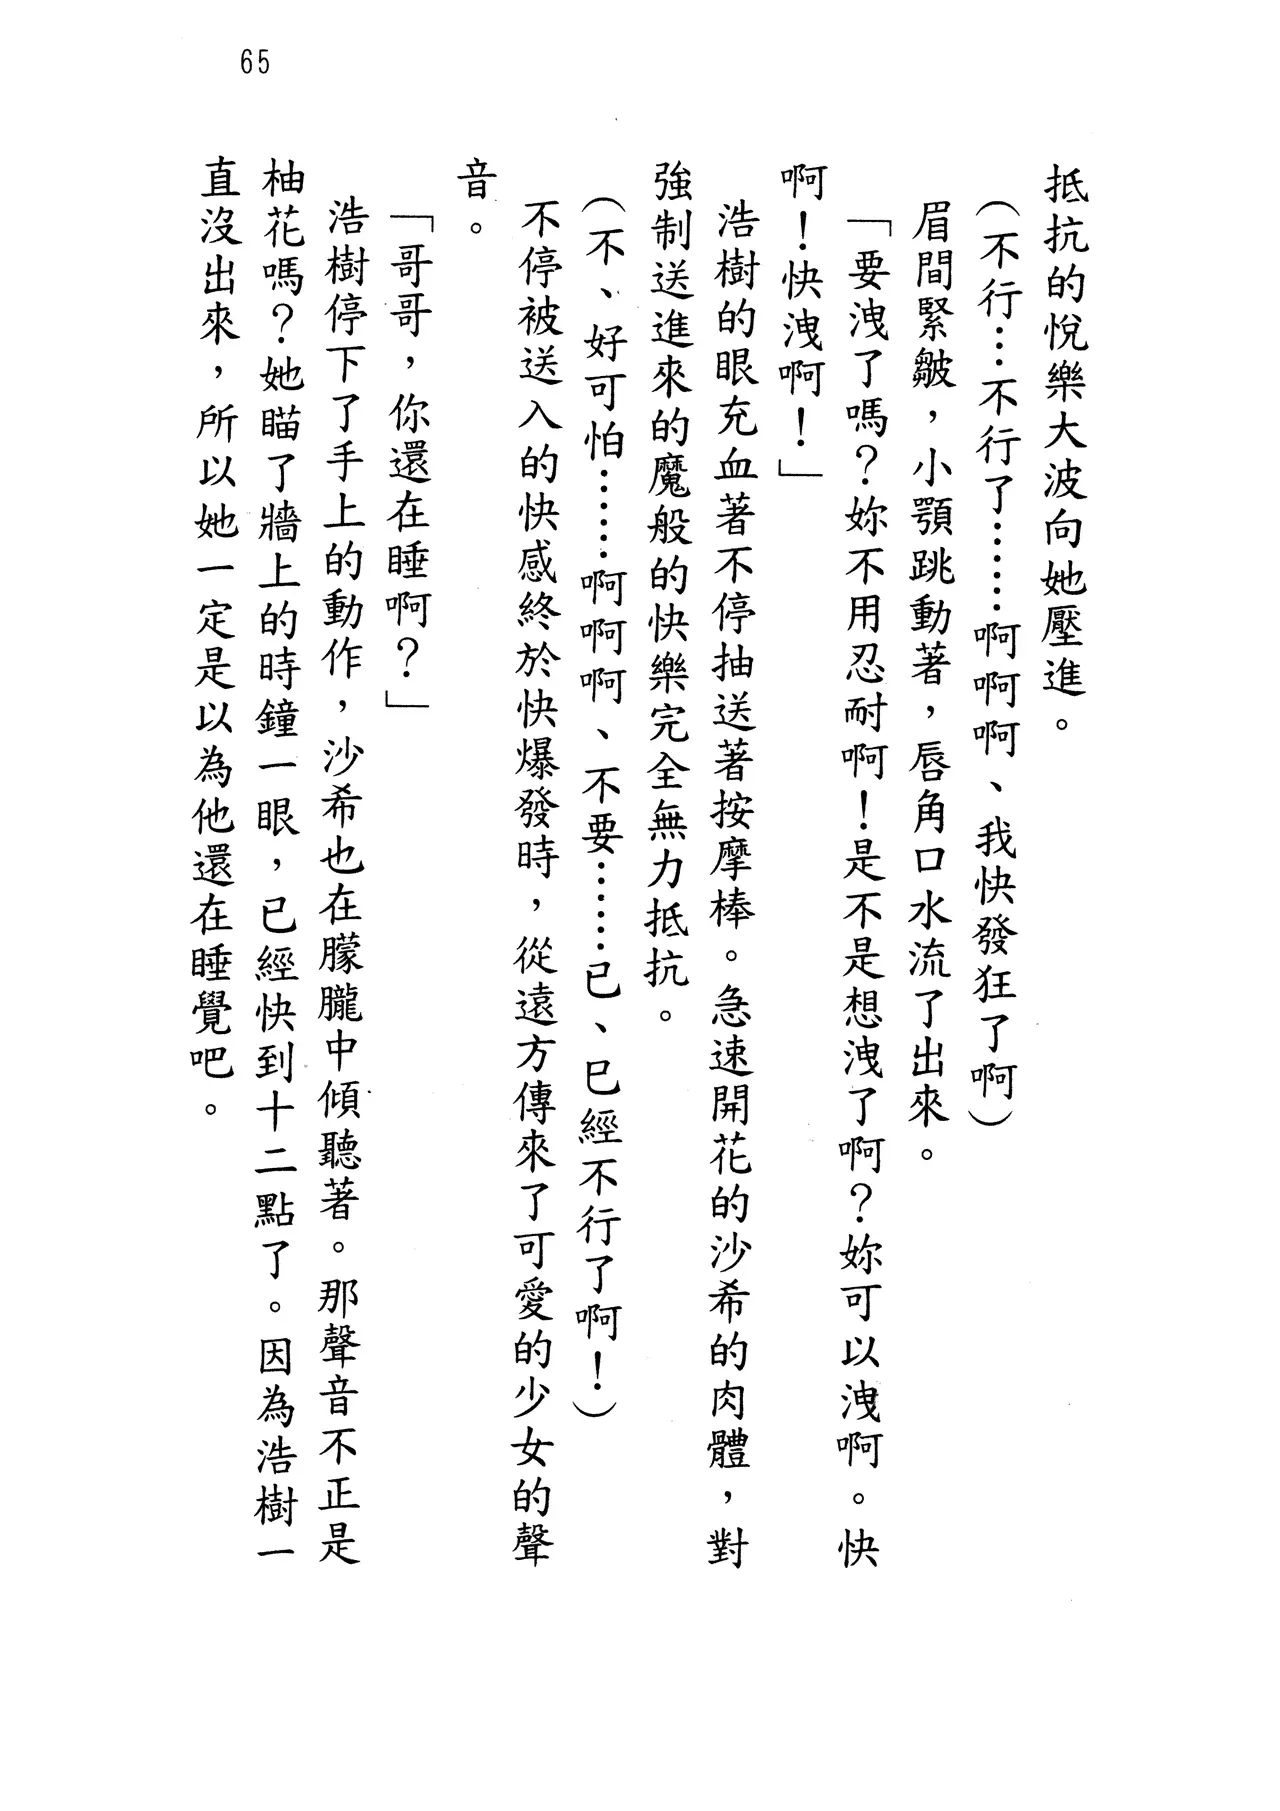 65
抵抗的悅樂大波向她壓進。
（不行…不行了……啊啊啊、我快發狂了啊）
眉間緊皺，小顎跳動著，唇角口水流了出來。
「要洩了嗎？妳不用忍耐啊！是不是想洩了啊？妳可以洩啊。快
啊！快洩啊！」
浩樹的眼充血著不停抽送著按摩棒。急速開花的沙希的肉體，對
強制送進來的魔般的快樂完全無力抵抗。
（不、好可怕……啊啊啊、不要……已、已經不行了啊！）
不停被送入的快感終於快爆發時，從遠方傳來了可愛的少女的聲
音。
「哥哥，你還在睡啊？」
浩樹停下了手上的動作，沙希也在朦朧中傾聽著。那聲音不正是
柚花嗎？她瞄了牆上的時鐘一眼，已經快到十二點了。因為浩樹一
直沒出來，所以她一定是以為他還在睡覺吧。